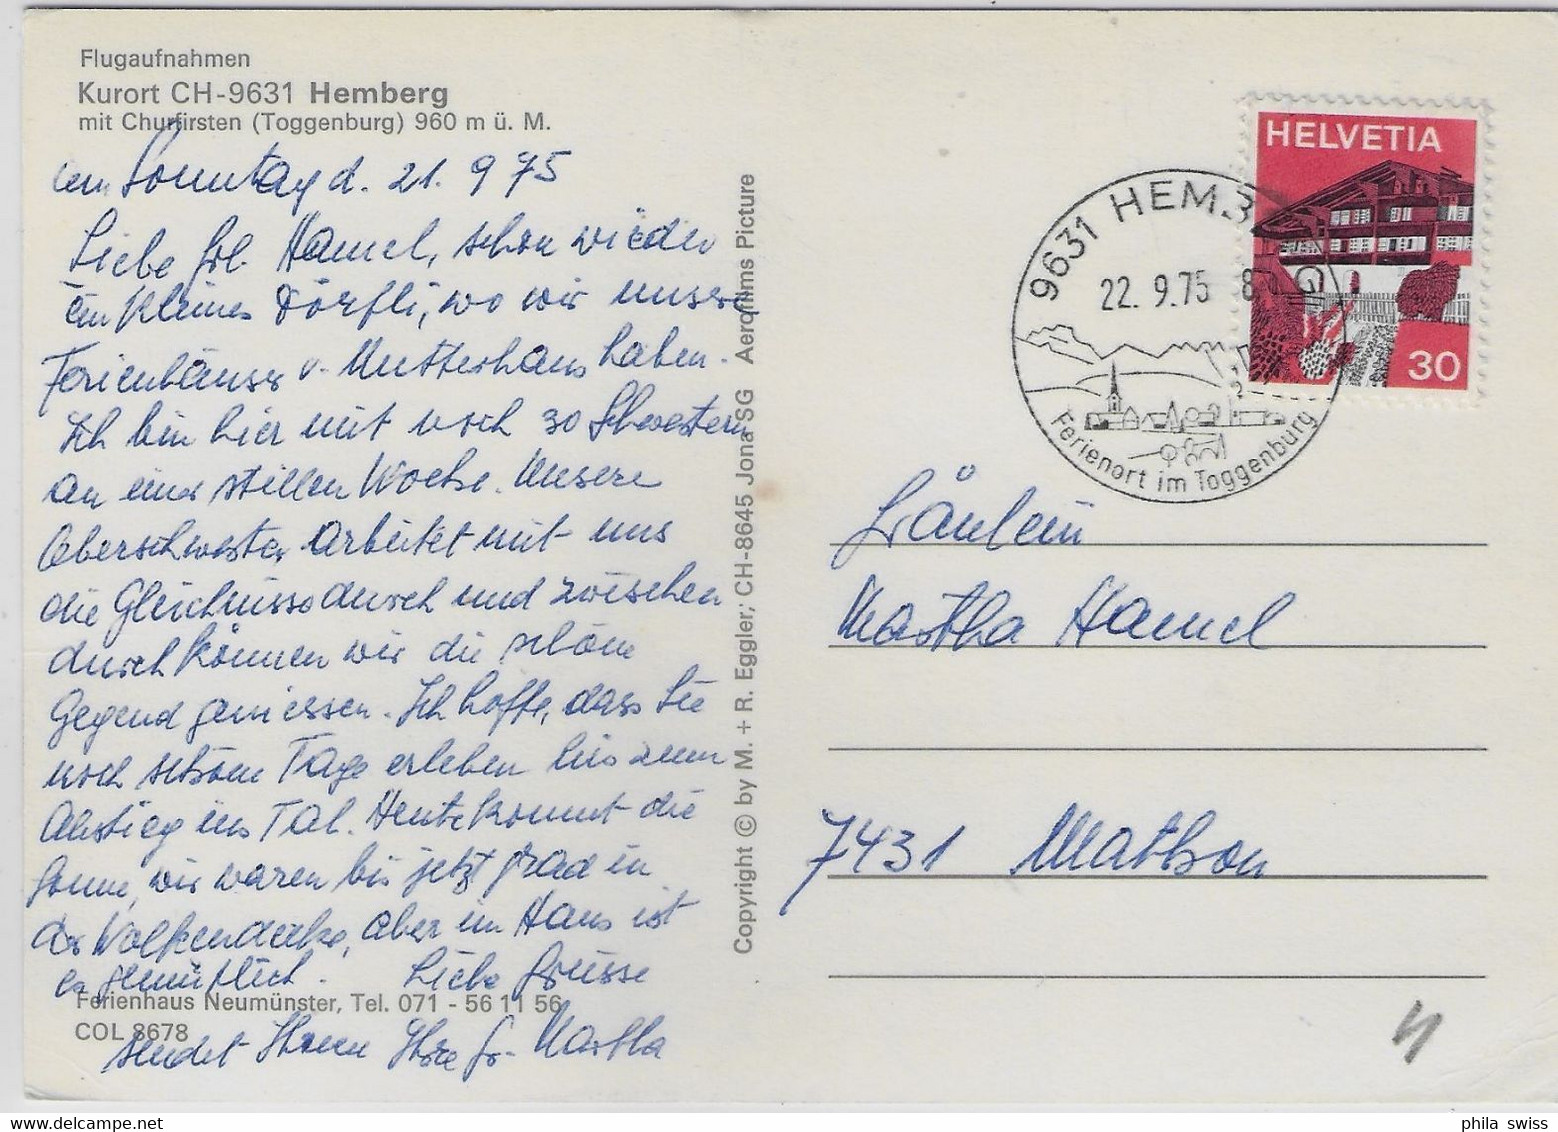 Flugaufnahmen
Kurort CH-9631 Hemberg
mit Churfirsten (Toggenburg) 960 m ü. M.
am Sonntag d. 21. 9 75
Liebe Frl. Hamel, schon wieder
ein kleines Dörfli, wo wir unsere
Ferienhäuser u. Mutterhaus haben.
Ich bin hier mit noch 30 Schwestern
an einer stillen Woche. Unsere
Oberschwester arbeitet mit uns
die Gleichnisse durch und zwischen
durch können wir die schöne
Gegend geniessen. Ich hoffe, dass Sie
noch schöne Tage erleben bis zum
Abstieg ins Tal. Heute kommt die
Sonne, wir waren bis jetzt grad in
der Wolkendecke, aber im Haus ist
es gemütlich. Liebe Grüsse
Ferienhaus Neumünster, Tel. 071 - 56 11 56
COL 8678
sendet Ihnen Ihre Sr. Martha
Copyright © by M. + R. Eggler; CH-8645 Jona SG Aerofilms Picture
HELVETIA
30
9631 HEMBERG
22. 9.75
Ferienort im Toggenburg
Fräulein
Martha Hamel
7431 Mathon
phila swiss